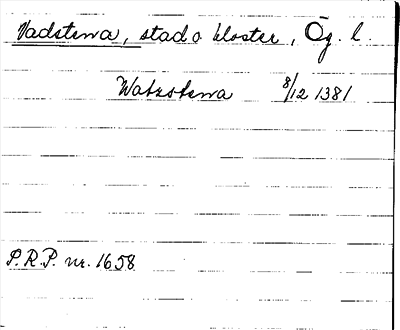 Vadstena, stad o kloster, Ög. l.
Watzstena 8/12 1381
P.R.P. nr. 1658